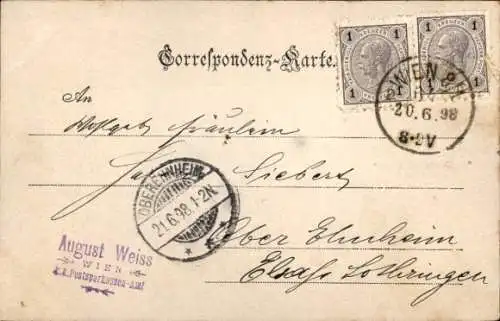 Correspondenz-Karte.
1 KREUZER 1
1 KREUZER 1
WIEN
20.6.98
8-9V
An
Wohlgeb Fräulein
Siebert
OBEREHNHEIM
21.6.98.1-2N.
* *
Ober Ehnheim
Elsass Lothringen
August Weiss
WIEN
k.k. Postsparkassen-Amt